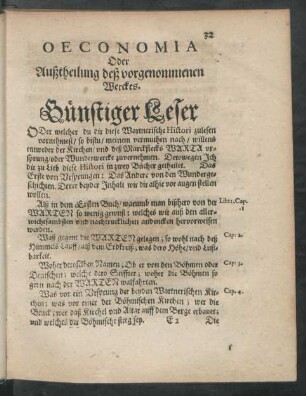 32
OECONOMIA
Oder
Außtheilung deß vorgenommenen
Werckes.
Günstiger Leser
ODer welcher du dir diese Wartnerische Histori zulesen
vornihmest/ so bistu/ meinem vermuthen nach/ willens
entweder der Kirchen/ und deß Marckflecks WARTA ur-
sprung/ oder Wunderwercke zuvernehmen. Derwegen Ich
dir zu Lieb diese Histori in zwey Bücher getheilet. Das
Erste vom Ursprungen: Das Andere von den Wunderge-
schichten. Derer beyder Inhalt wir dir alhie vor augen stellen
wollen.
Alß in dem Ersten Buch/ warumb man bißhero von der Libr.1. Cap.
WARTEN so wenig gewust: welches wir auß den aller- 1
nachdrucklichen andencken hervorweisen
werden.
Waß gegent die WARTEN gelegen; so wohl nach deß Cap: 2.
Himmels Lauff/ alß dem Erdkreiß; was dero Höhe/ und Lust-
barkeit.
Woher derselben Namen; Ob er von den Böhmen oder Cap: 3.
Deutschen: welche dero Stiffter; woher die Böhmen so
gern nach der WARTEN walfahrten.
Was vor ein Ursprung der beyden Wartnerischen Kir- Cap: 4.
chen: was vor einer der Böhmischen Kirchen; wer die
Brück; wer daß Kirchel und Altar auff dem Berge erbawet;
und welches der Böhmische steig sey. E 2 Die